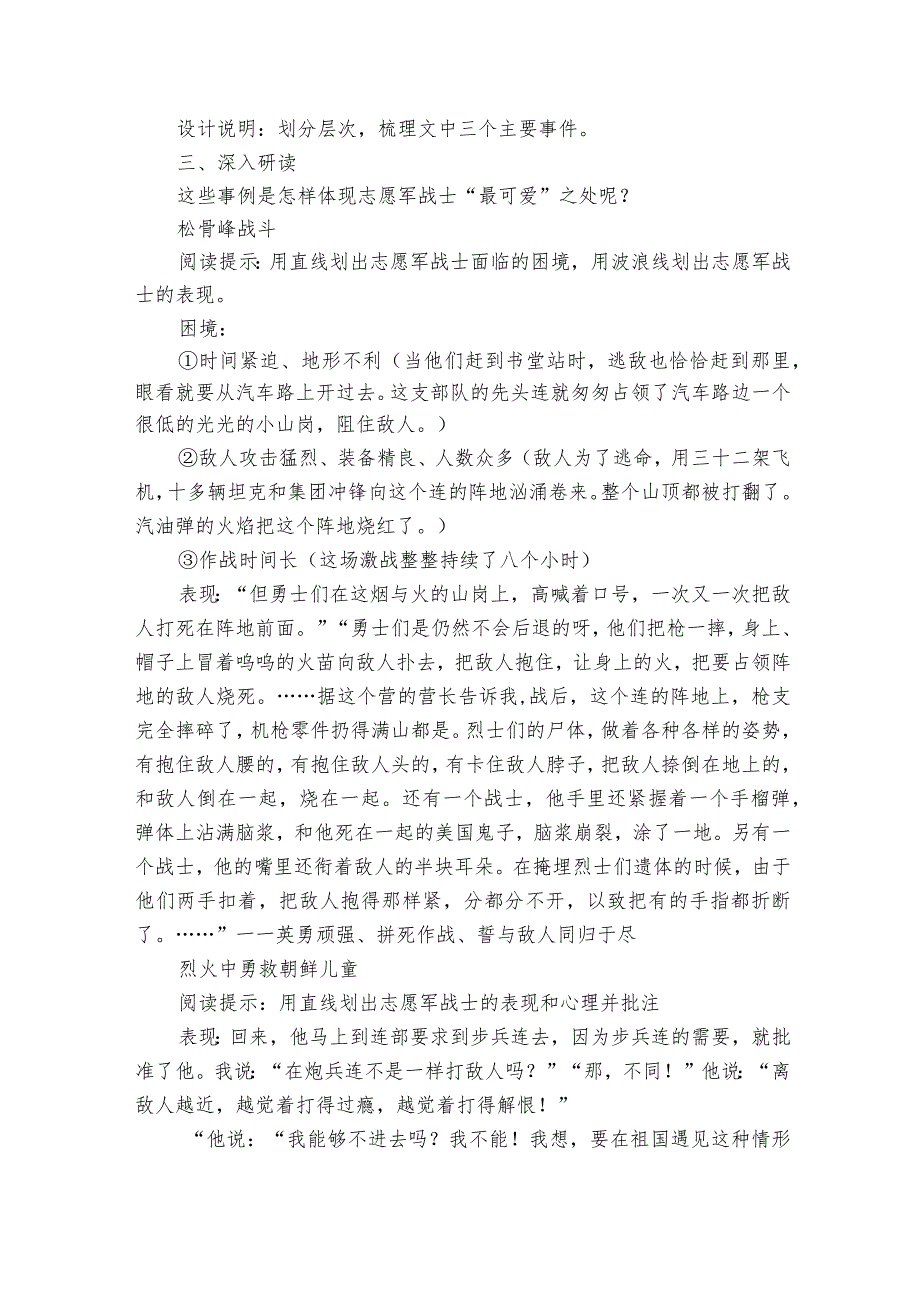 设计说明：划分层次，梳理文中三个主要事件。
三、深入研读
这些事例是怎样体现志愿军战士“最可爱”之处呢？
松骨峰战斗
阅读提示：用直线划出志愿军战士面临的困境，用波浪线划出志愿军战
士的表现。
困境：
①时间紧迫、地形不利（当他们赶到书堂站时，逃敌也恰恰赶到那里，
眼看就要从汽车路上开过去。这支部队的先头连就匆匆占领了汽车路边一个
很低的光光的小山岗，阻住敌人。）
②敌人攻击猛烈、装备精良、人数众多（敌人为了逃命，用三十二架飞
机，十多辆坦克和集团冲锋向这个连的阵地汹涌卷来。整个山顶都被打翻了。
汽油弹的火焰把这个阵地烧红了。）
③作战时间长（这场激战整整持续了八个小时）
表现：“但勇士们在这烟与火的山岗上，高喊着口号，一次又一次把敌
人打死在阵地前面。”“勇士们是仍然不会后退的呀，他们把枪一摔，身上、
帽子上冒着呜呜的火苗向敌人扑去，把敌人抱住，让身上的火，把要占领阵
地的敌人烧死。……据这个营的营长告诉我,战后，这个连的阵地上，枪支
完全摔碎了，机枪零件扔得满山都是。烈士们的尸体，做着各种各样的姿势，
有抱住敌人腰的，有抱住敌人头的，有卡住敌人脖子，把敌人捺倒在地上的，
和敌人倒在一起，烧在一起。还有一个战士，他手里还紧握着一个手榴弹，
弹体上沾满脑浆，和他死在一起的美国鬼子，脑浆崩裂，涂了一地。另有一
个战士，他的嘴里还衔着敌人的半块耳朵。在掩埋烈士们遗体的时候，由于
他们两手扣着，把敌人抱得那样紧，分都分不开，以致把有的手指都折断
了。……”一一英勇顽强、拼死作战、誓与敌人同归于尽
烈火中勇救朝鲜儿童
阅读提示：用直线划出志愿军战士的表现和心理并批注
表现：回来，他马上到连部要求到步兵连去，因为步兵连的需要，就批
准了他。我说：“在炮兵连不是一样打敌人吗？”“那，不同！”他说：“离
敌人越近，越觉着打得过瘾，越觉着打得解恨！”
“他说：“我能够不进去吗？我不能！我想，要在祖国遇见这种情形